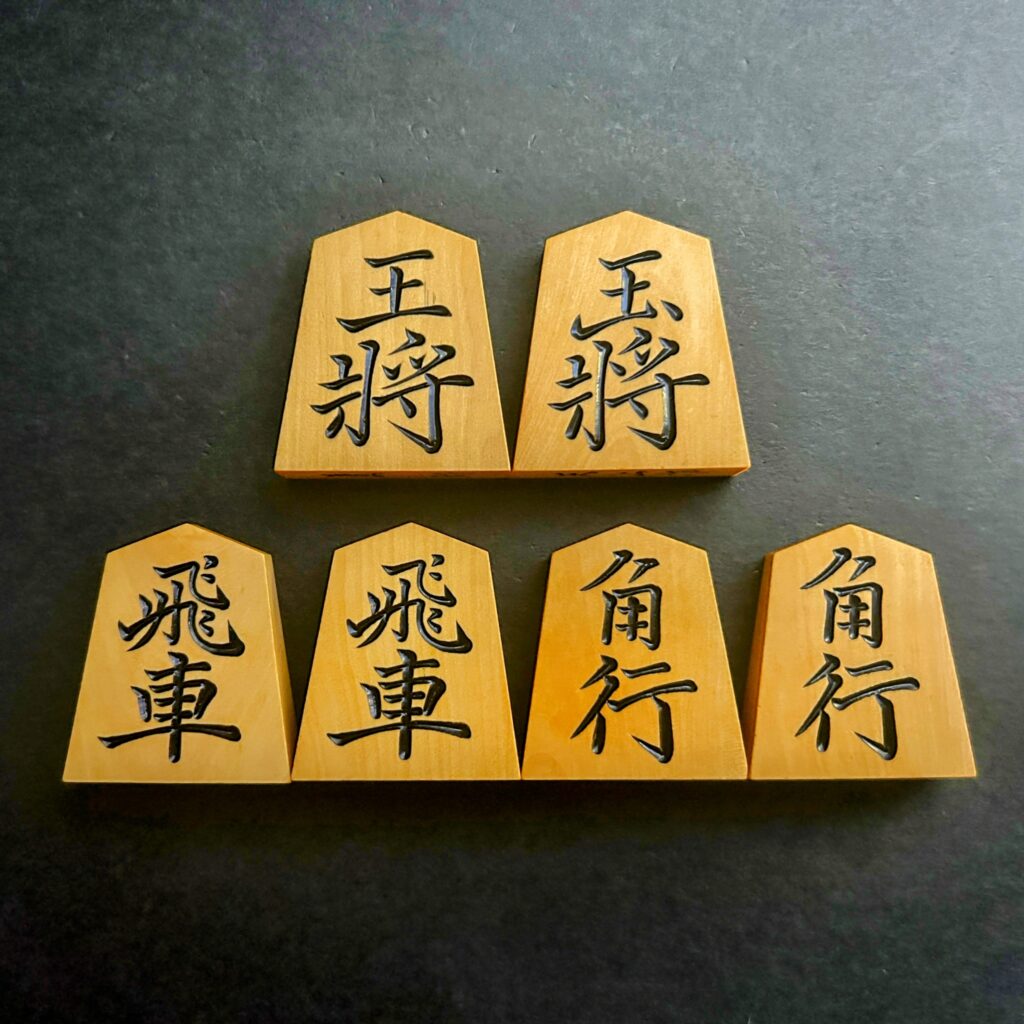 王將 玉將
飛車 飛車 角行 角行